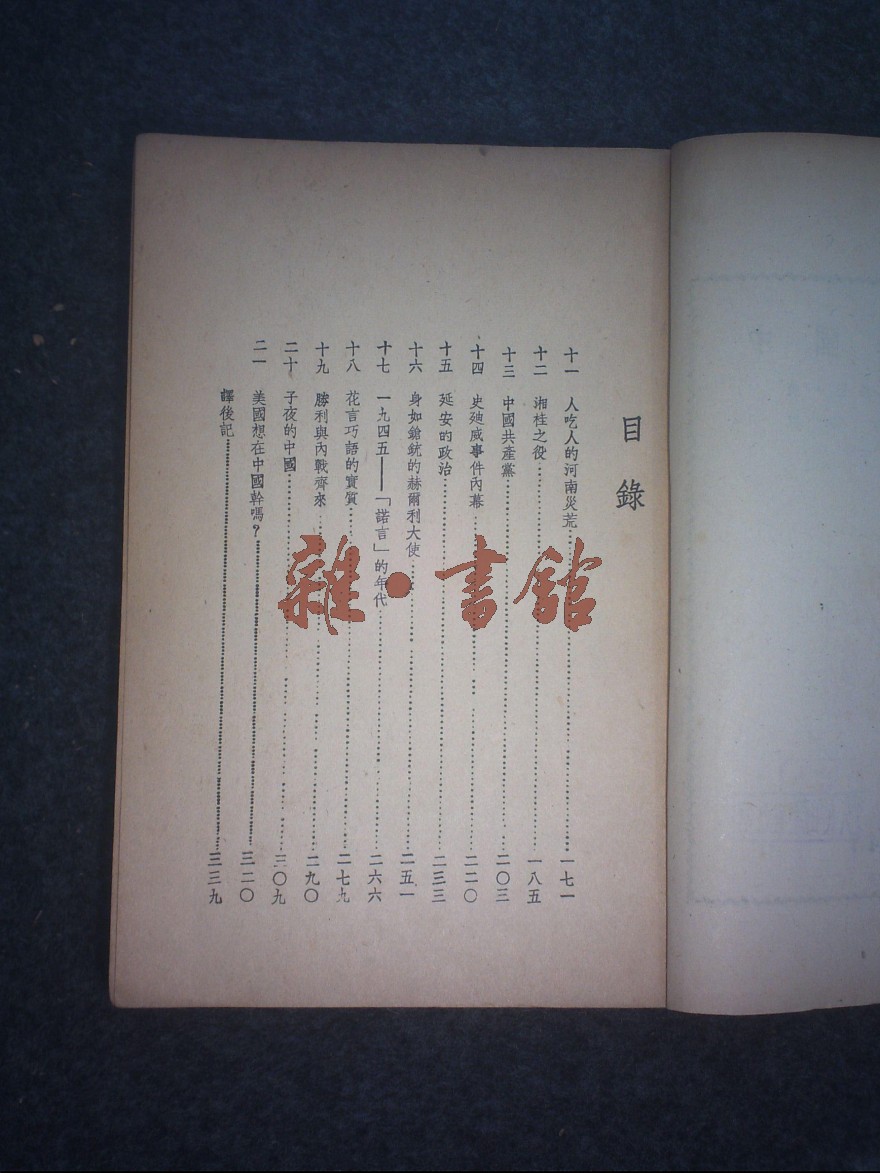 目錄
十一 人吃人的河南災荒……一七一
十二 湘桂之役……一八五
十三 中國共產黨……二〇三
十四 史廸威事件內幕……二二〇
十五 延安的政治……二三三
十六 身如鎗銃的赫爾利大使……二五一
十七 一九四五——「諾言」的年代……二六六
十八 花言巧語的實質……二七九
十九 勝利與內戰齊來……二九〇
二十 子夜的中國……三〇九
二一 美國想在中國幹嗎?……三二〇
譯後記……三三九
雜·書館